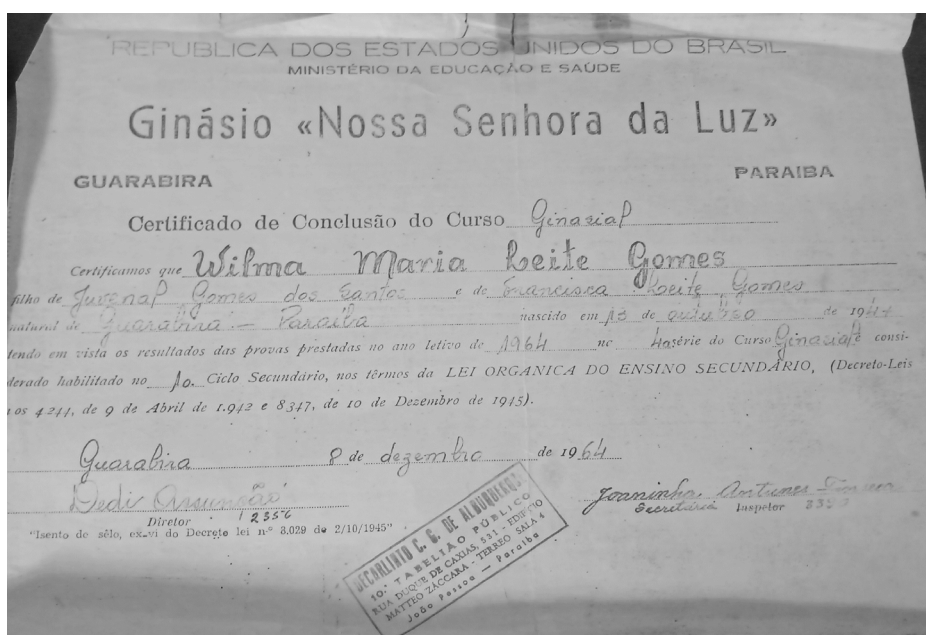 REPUBLICA DOS ESTADOS UNIDOS DO BRASIL
MINISTÉRIO DA EDUCAÇÃO E SAÚDE
Ginásio «Nossa Senhora da Luz»
GUARABIRA PARAIBA
Certificado de Conclusão do Curso Ginasial
Certificamos que Wilma Maria Leite Gomes
filho de Juvenal Gomes dos Santos e de Francisca Leite Gomes
natural de Guarabira - Paraiba nascido em 13 de outubro de 1944
tendo em vista os resultados das provas prestadas no ano letivo de 1964 na 4a série do Curso Ginasial é consi-
derado habilitado no 1o. Ciclo Secundário, nos têrmos da LEI ORGANICA DO ENSINO SECUNDÁRIO, (Decreto-Leis
nos 4.244, de 9 de Abril de 1.942 e 8347, de 10 de Dezembro de 1945).
Guarabira 8 de dezembro de 1964
Dedi Assunção Joaninha Antunes
Diretor 12356 Secretária Inspetor
"Isento de sêlo, ex-vi do Decreto lei nº 8.029 de 2/10/1945"
DECARLINTO C. G. DE ALBUQUERQUE
10.º TABELIÃO PÚBLICO
RUA DUQUE DE CAXIAS, 531 - EDIFICIO
MATTEO ZÁCCARA - TERREO SALA 4
João Pessoa — Paraiba